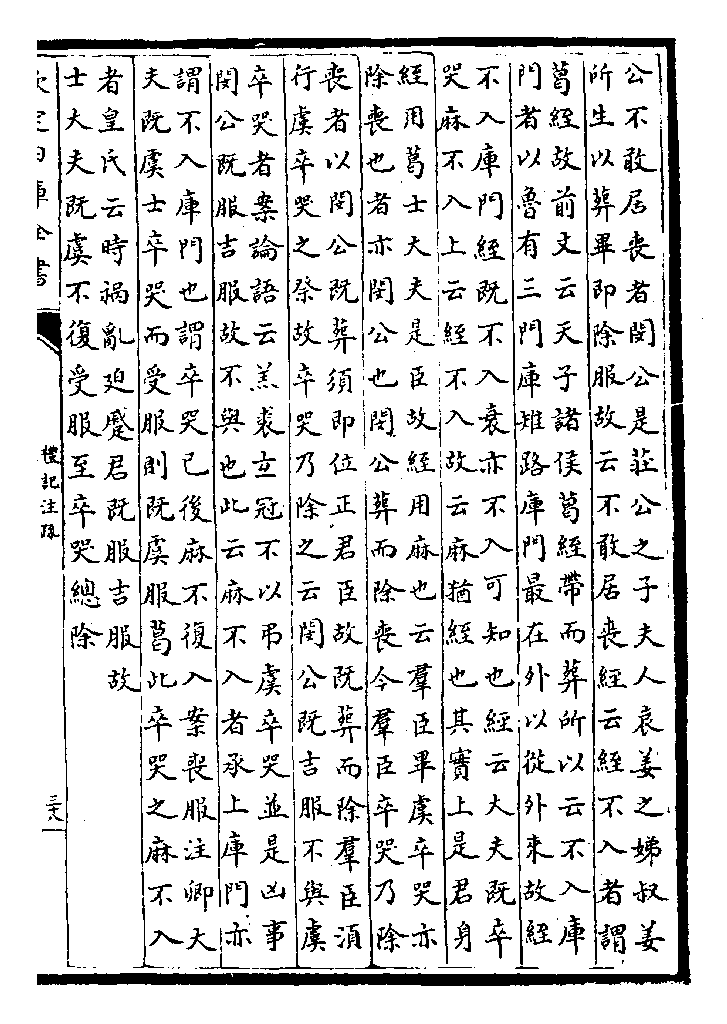 公不敢居喪者閔公是莊公之子夫人哀姜之娣叔姜
所生以葬畢即除服故云不敢居喪經云絰不入者謂
葛絰故前文云天子諸侯葛絰帶而葬所以云不入庫
門者以魯有三門庫雉路庫門最在外以從外來故經
不入庫門絰既不入衰亦不入可知也經云大夫既卒
哭麻不入上云絰不入故云麻猶絰也其實上是君身
絰用葛士大夫是臣故絰用麻也云羣臣畢虞卒哭亦
除喪也者亦閔公也閔公葬而除喪今羣臣卒哭乃除
喪者以閔公既葬須即位正君臣故既葬而除羣臣須
行虞卒哭之祭故卒哭乃除之云閔公既吉服不與虞
卒哭者案論語云羔裘玄冠不以弔虞卒哭並是凶事
閔公既服吉服故不與也此云麻不入者承上庫門亦
謂不入庫門也謂卒哭已後麻不復入案喪服注卿大
夫既虞士卒哭而受服則既虞服葛此卒哭之麻不入
者皇氏云時禍亂迫蹙君既服吉服故
士大夫既虞不復受服至卒哭總除
欽定四庫全書
禮記注疏
三十八